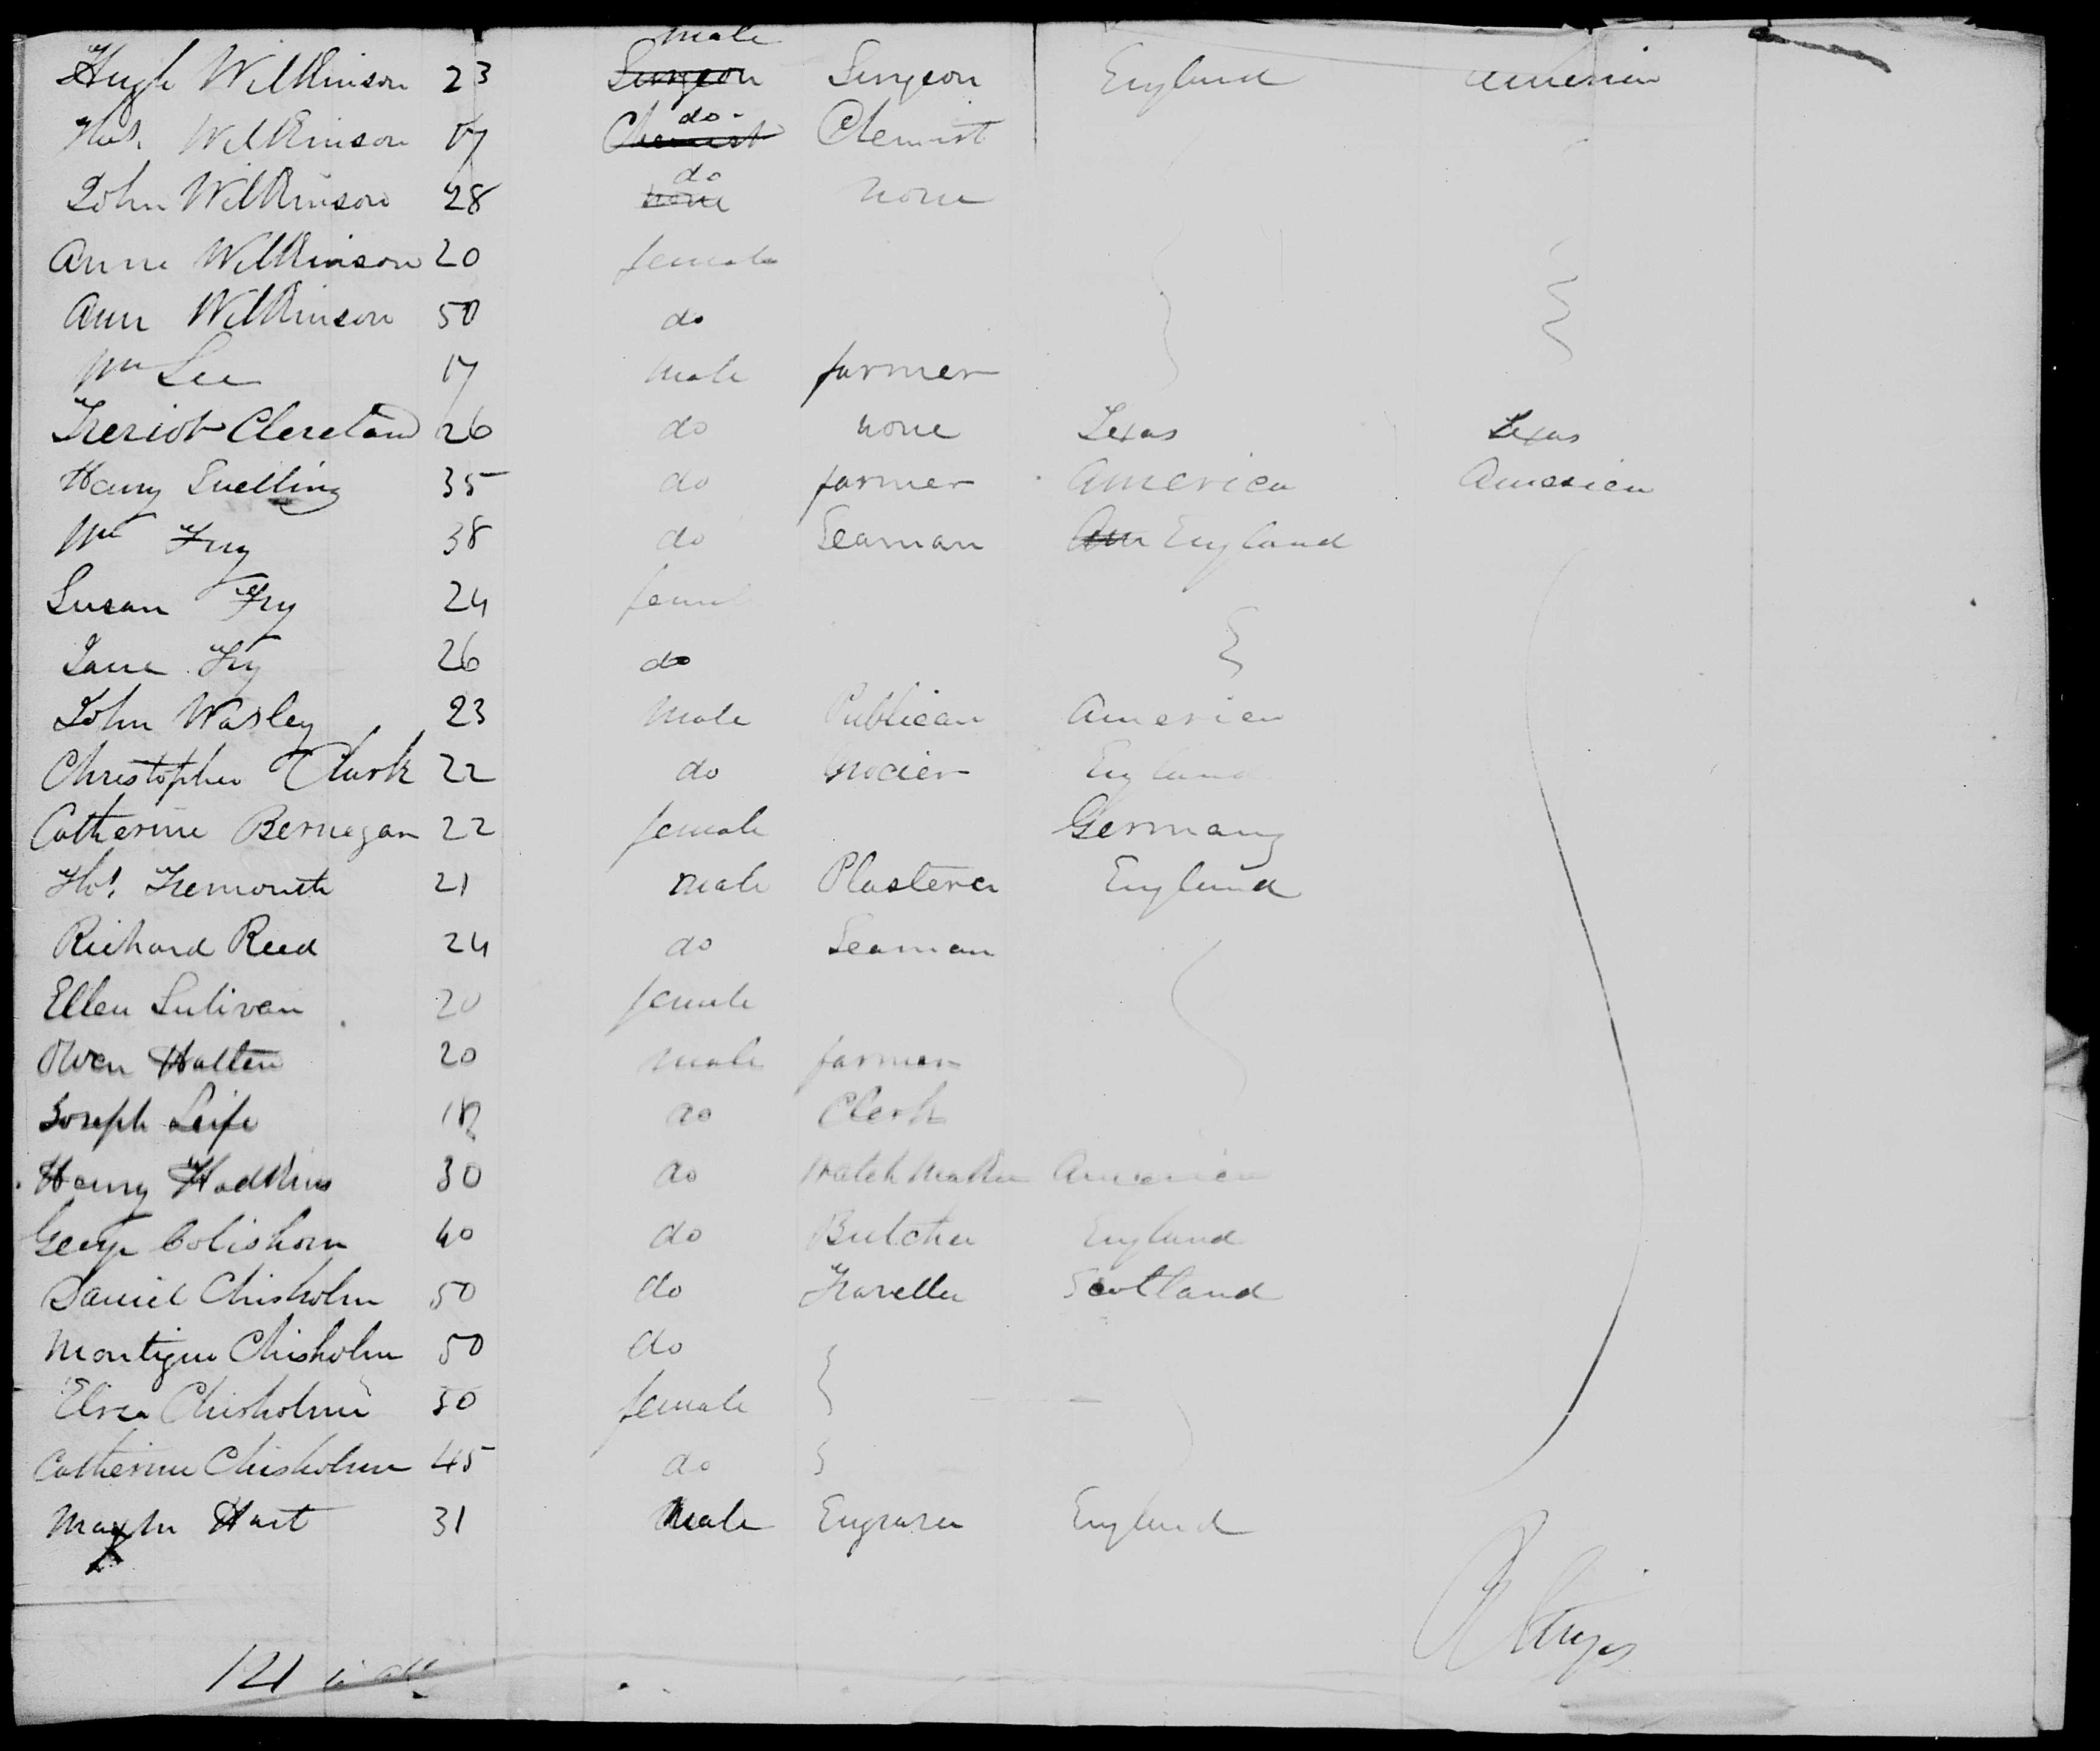 Hugh Wilkinson 23 male Surgeon Surgeon England America
Thos. Wilkinson 17 do - Chemist Chemist
John Wilkinson 28 do none none
Anne Wilkinson 20 female
Ann Wilkinson 50 do
Wm Lee 17 male farmer
Cleveland 26 do none Texas Texas
Henry Snelling 35 do farmer America America
Wm Fry 38 do Seaman Am England
Susan Fry 24 femal
Jane Fry 26 do
John Wasley 23 Male Publican America
Christopher Clark 22 do Grocier England
Catherine Bernegan 22 female Germany
Thos. Tremouth 21 male Plasterer England
Richard Reed 24 do Seaman
Ellen Sulivan 20 female
Owen Hatten 20 male farmer
Joseph Leife do Clerk
Henry Hodkins 30 do Watch Maker America
George Colishorn 40 do Butcher England
Daniel Chisholm 50 do Traveller Scotland
Montigue Chisholm 50 do
Eliza Chisholm 50 female
Catherine Chisholm 45 do
Hart 31 Male Engraver England
121 in all